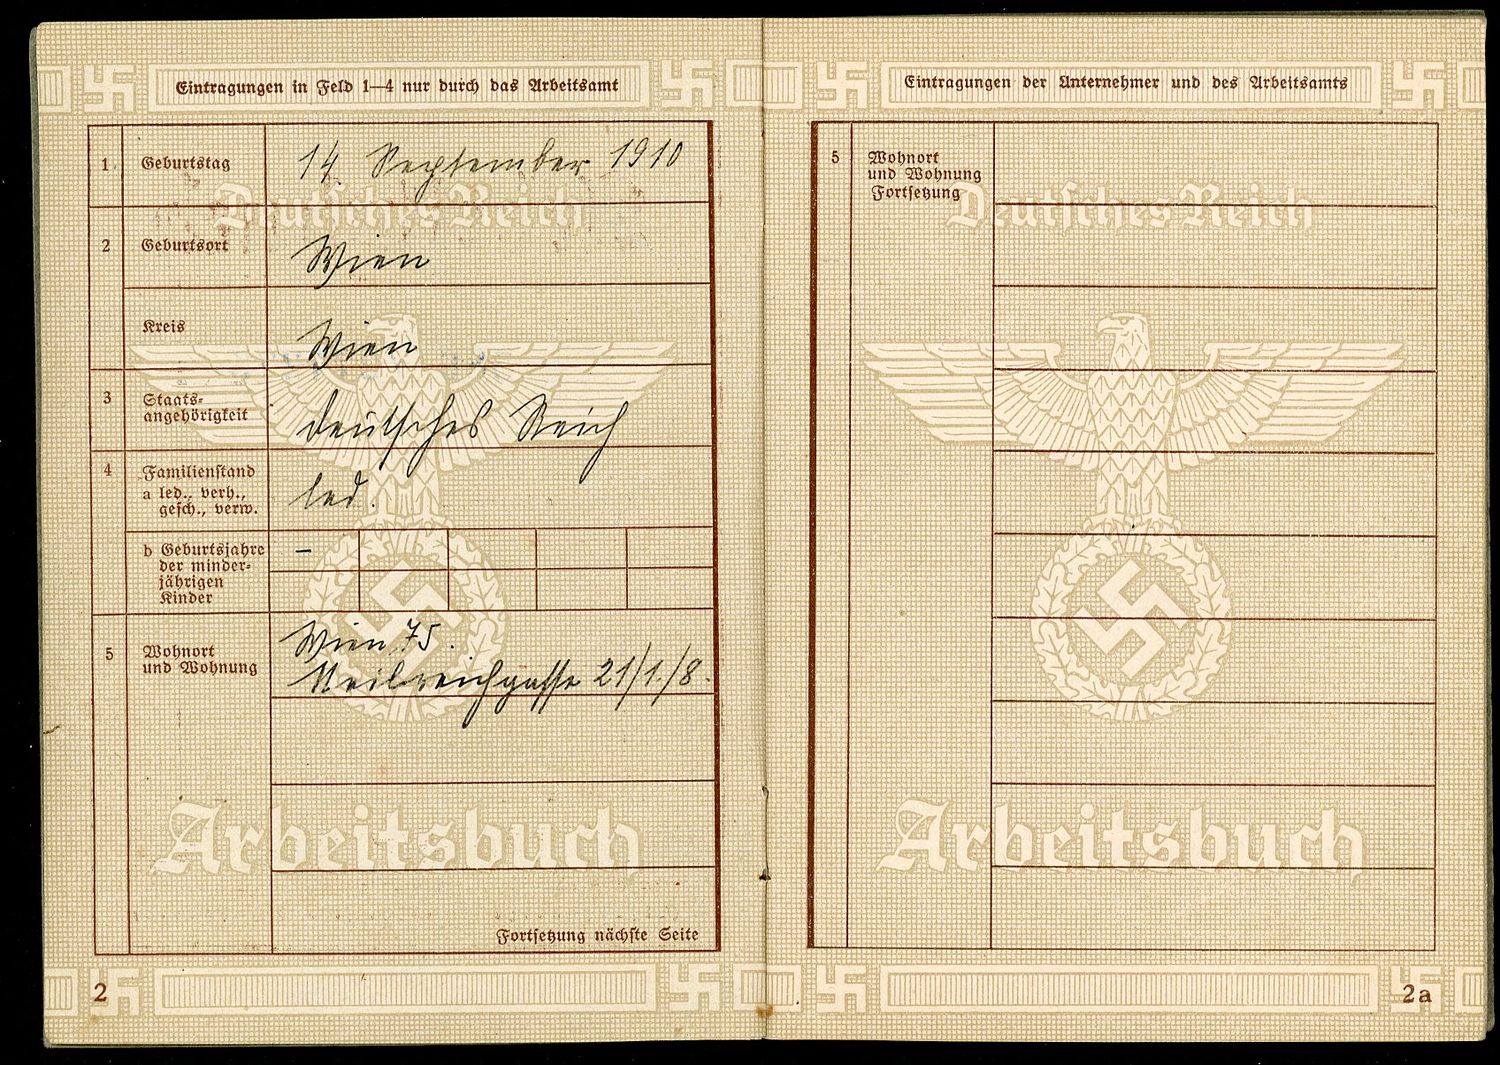 Eintragungen in Feld 1—4 nur durch das Arbeitsamt
1. Geburtstag
14. September 1910
2 Geburtsort
Wien
Kreis
Wien
3 Staats=
angehörigkeit
deutsches Reich
4 Familienstand
a led., verh.,
gesch., verw.
led.
b Geburtsjahre
der minder=
jährigen
Kinder
–
5 Wohnort
und Wohnung
Wien 75.
Neilreichgasse 21/1./8.
Fortsetzung nächste Seite
Deutsches Reich
Arbeitsbuch
2
Eintragungen der Unternehmer und des Arbeitsamts
5 Wohnort
und Wohnung
Fortsetzung
Deutsches Reich
Arbeitsbuch
2a